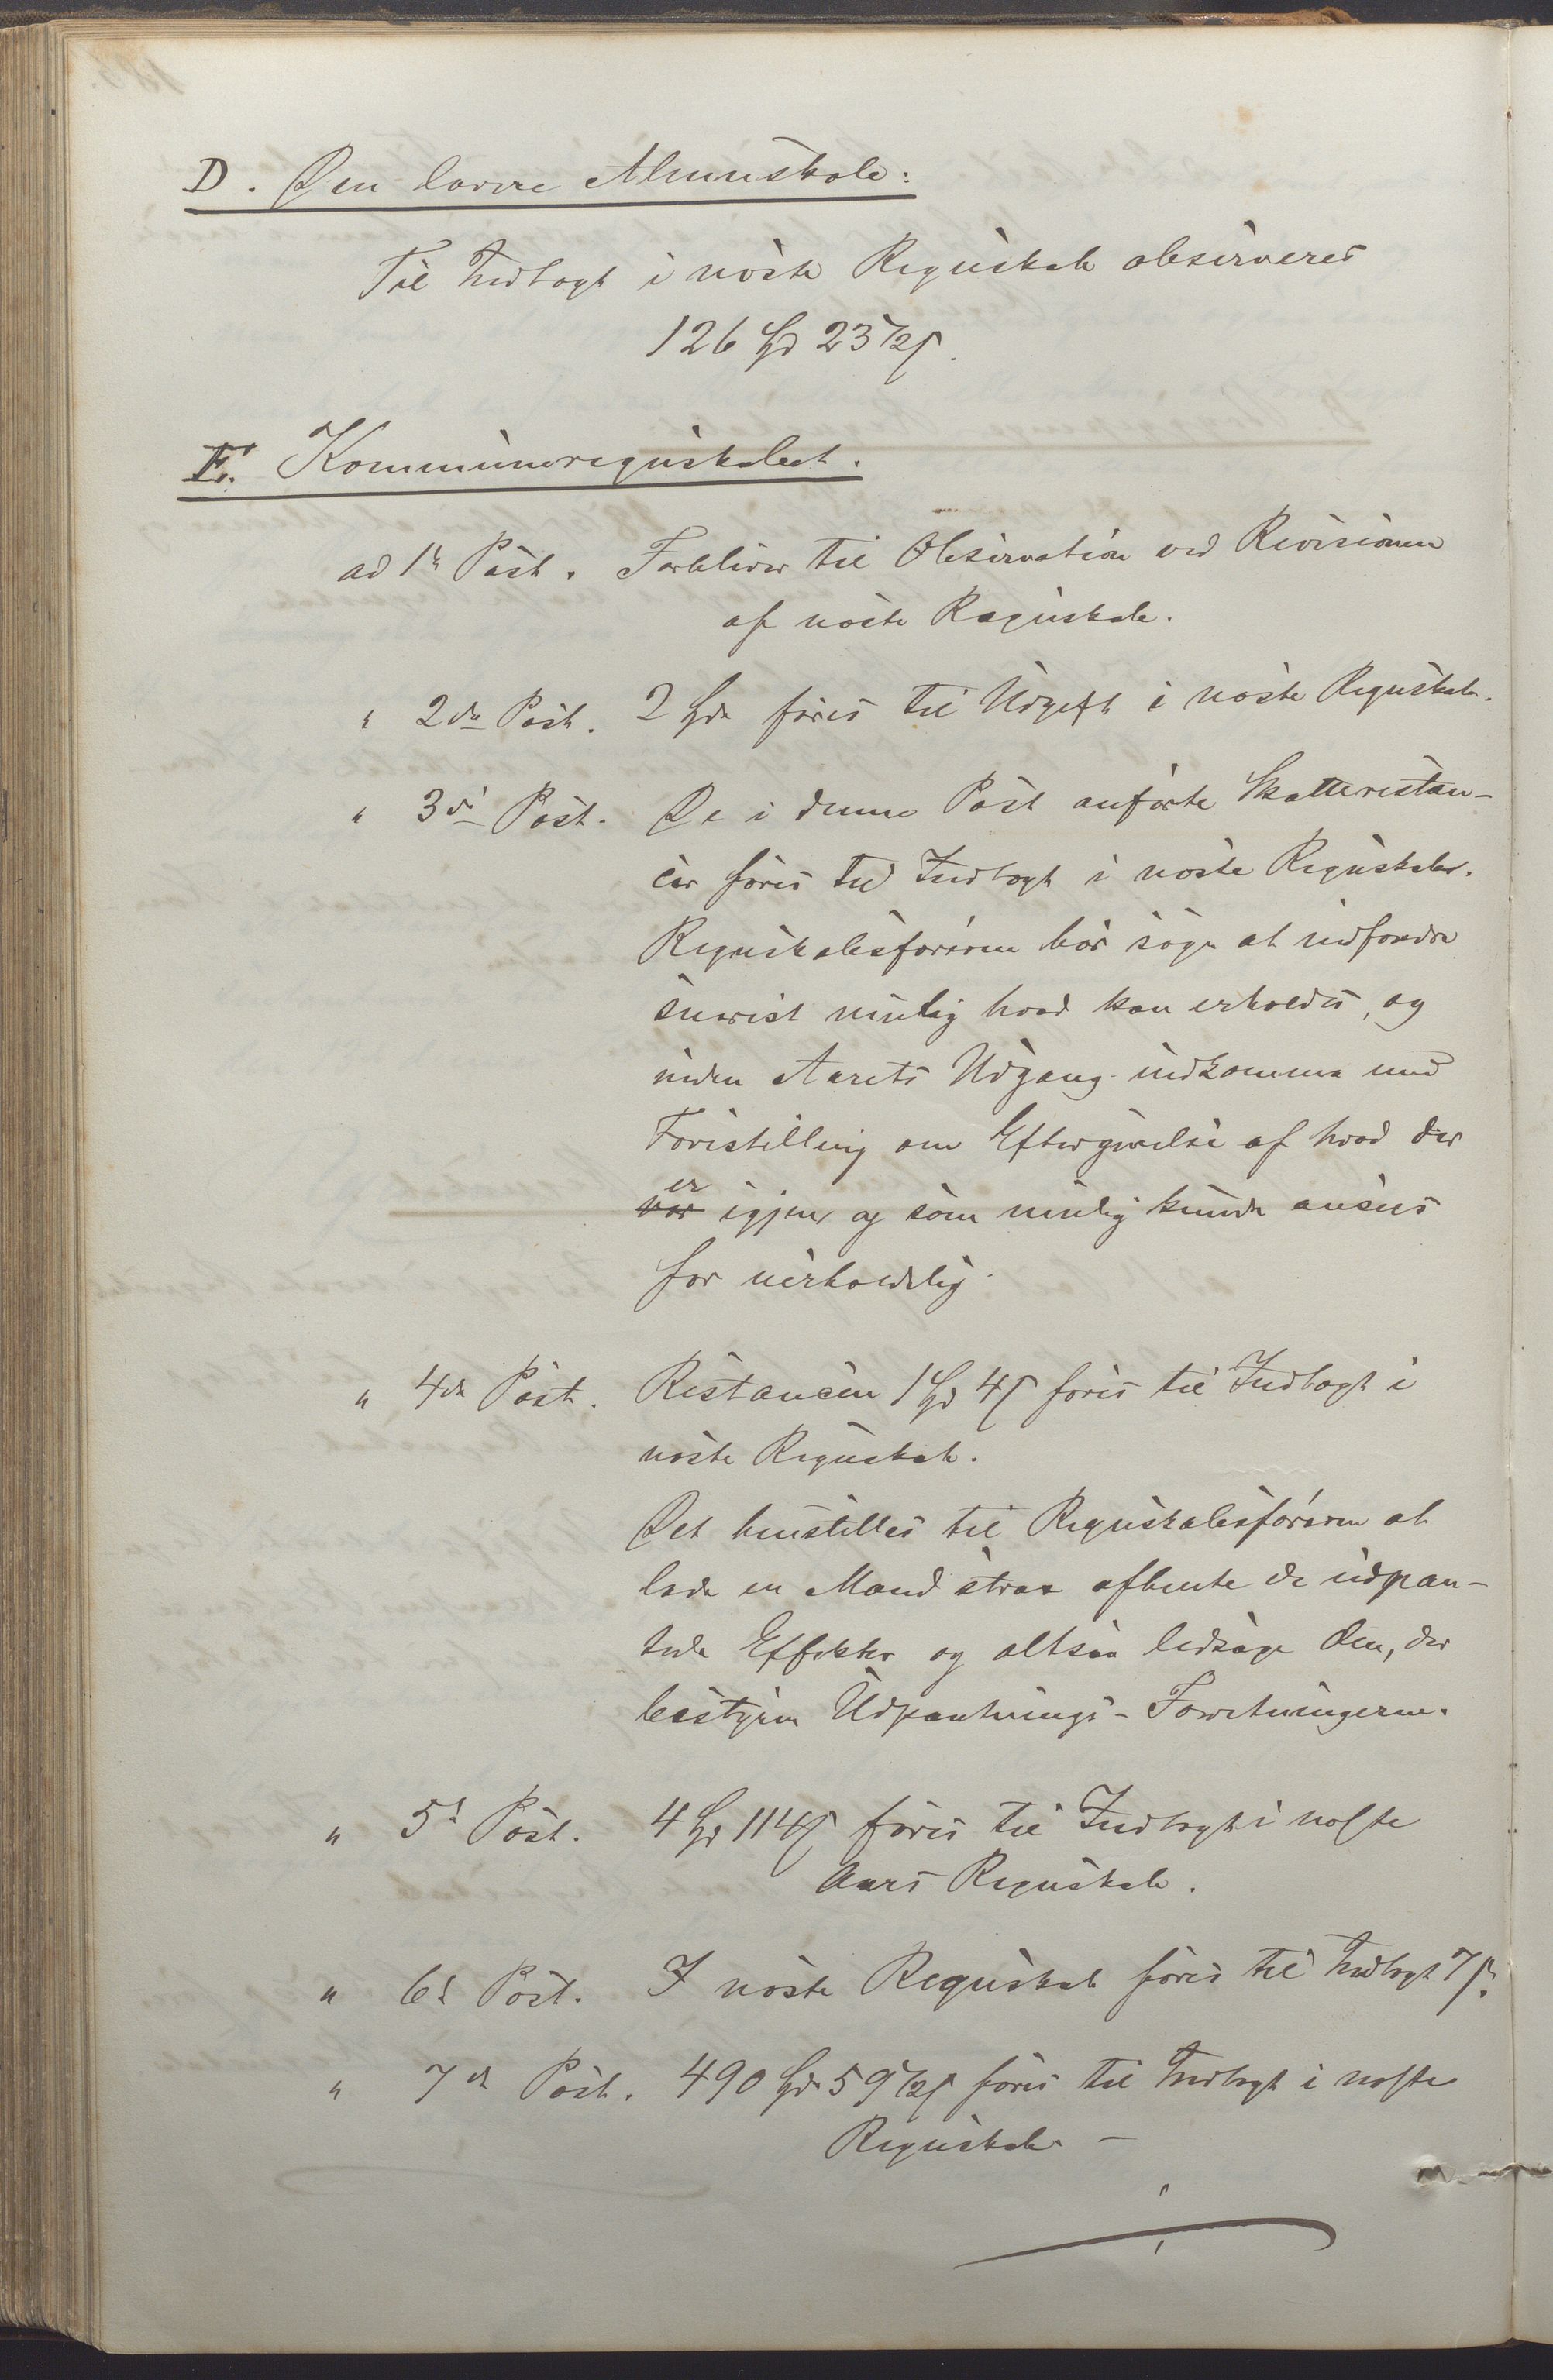 D. Den lavere Almuskole:
Til Indtægt i nøste Regnskab observeres
126 Spd 23 1/2 s.
E. Kommuneregnskabet.
ad 1te Post. Forbliver til Observation ved Revisionen
af nøste Regnskab.
" 2den Post. 2 Spd føres til Udgift i nøste Regnskab.
" 3die Post. De i denne Post anførte Skatterestan-
cer føres til Indtægt i nøste Regnskab.
Regnskabsføreren bør søge at indfordre
snarest mulig hvad kan erholdes, og
inden Aarets Udgang indkomme med
Forestilling om Eftergivelse af hvad der
er igjen og som mulig kunde ansees
for uerholdelig.
" 4de Post. Restancen 1 Spd 4 s føres til Indtægt i
nøste Regnskab.
Det henstilles til Regnskabsføreren at
lade en Mand strax afhente de udpan-
tede Effekter og altsaa ledsage den, der
bestyrer Udpantnings-Forretningerne.
" 5te Post. 4 Spd 114 s føres til Indtægt i nøste
Aars Regnskab.
" 6te Post. I nøste Regnskab føres til Indtægt 7 s.
" 7de Post. 490 Spd 59 1/2 s føres til Indtægt i nøste
Regnskab. –